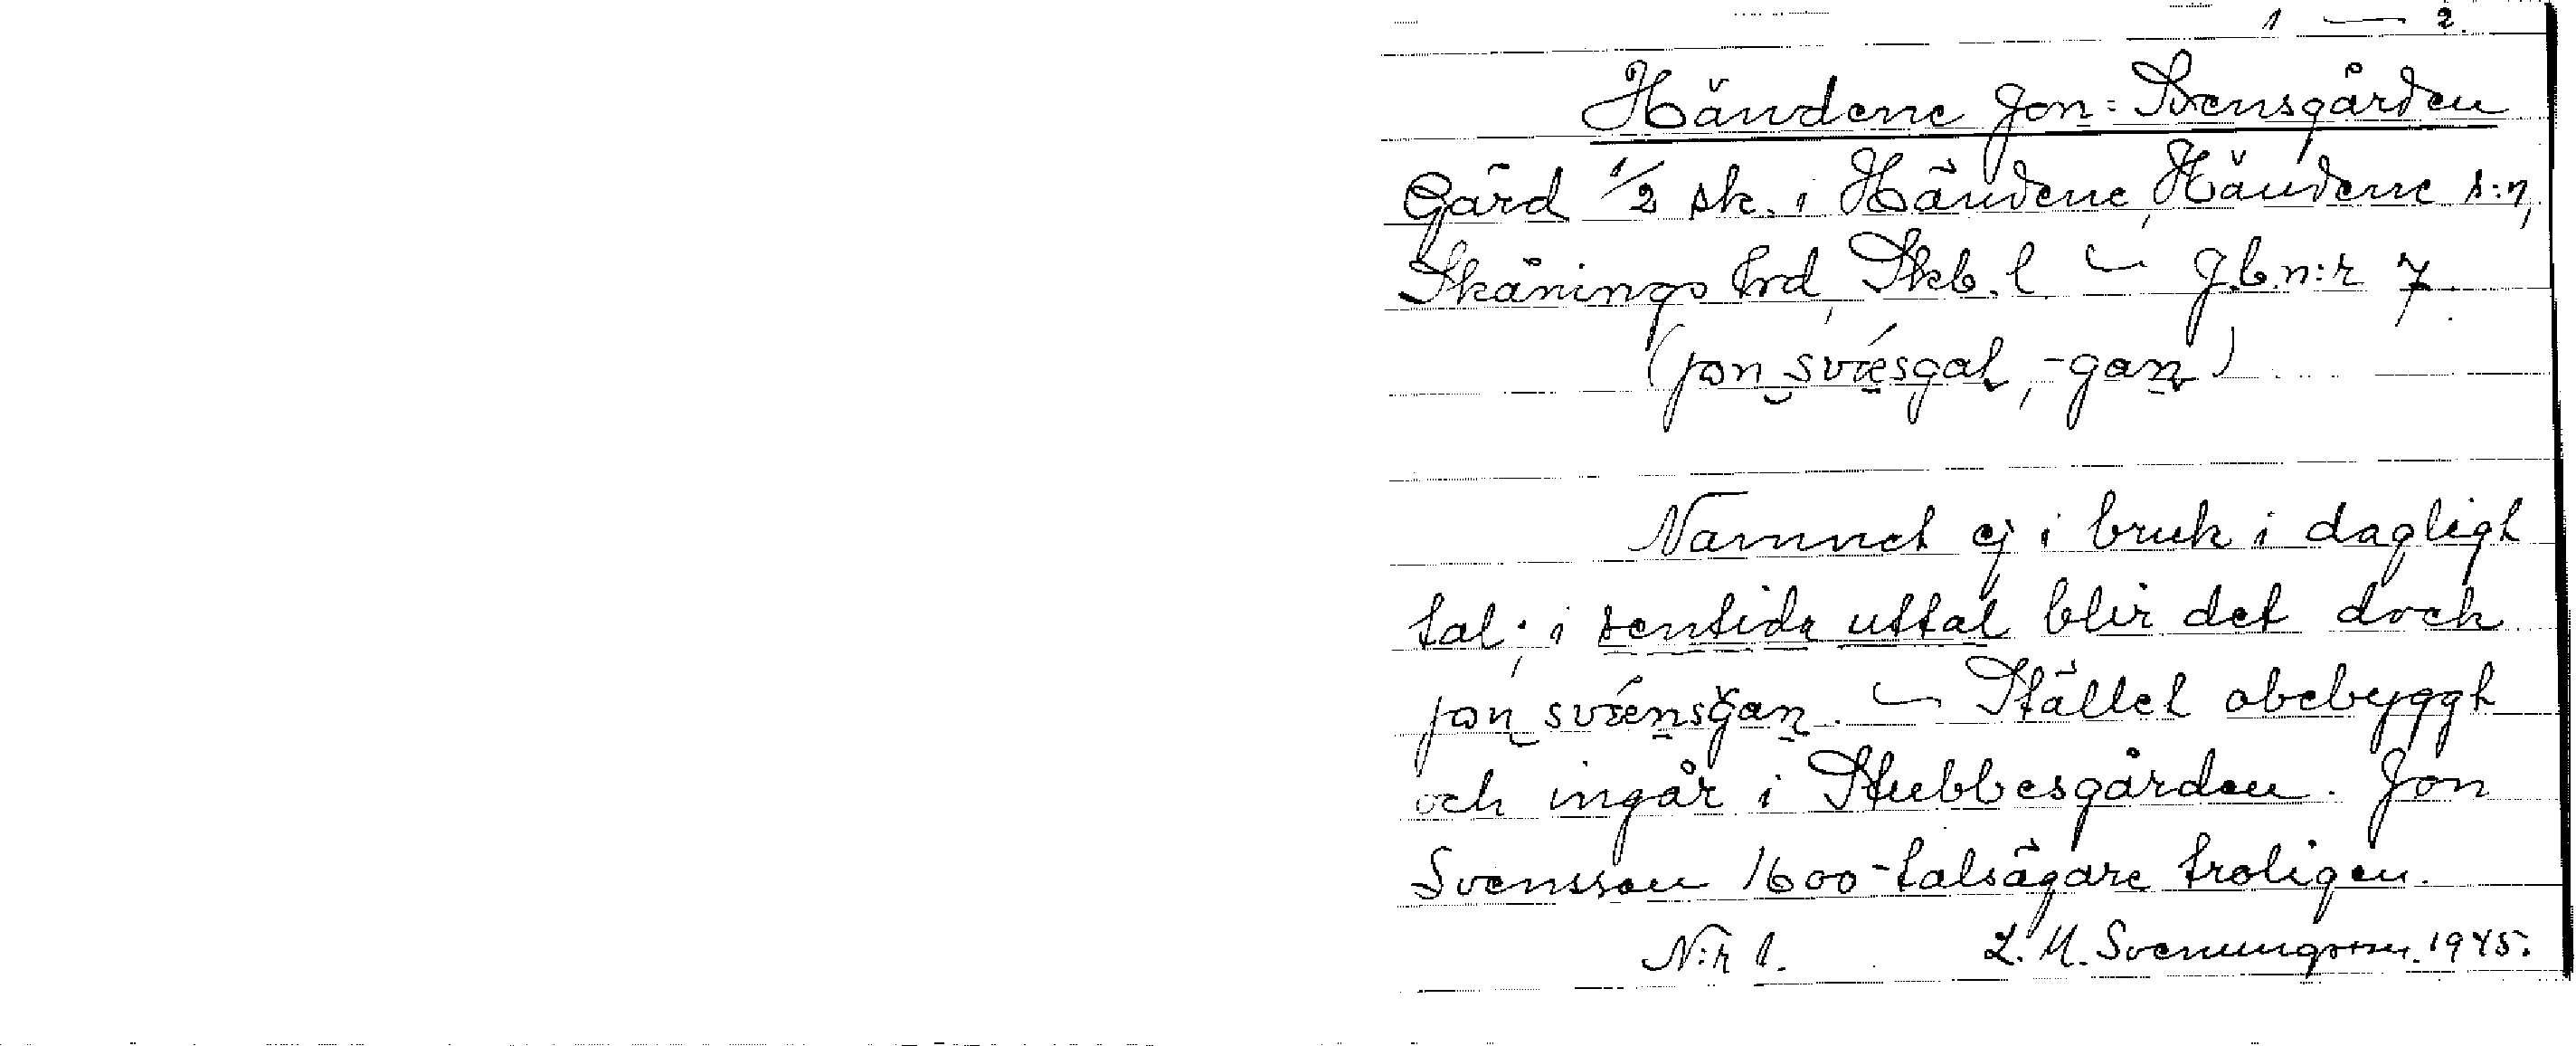 1 — 2.
Händene Jon-Svensgården
Gård 1/2 sk. i Händene, Händene s:n,
Skånings hrd, Skb. l. — J.b.n:r 7.
Namnet ej i bruk i dagligt
tal; i sentida uttal blir det dock
— Stället obebyggt
och ingår i Stubbesgården. Jon
Svensson 1600-talsägare troligen.
N:r 1. L. M. Svenungsson 1945.